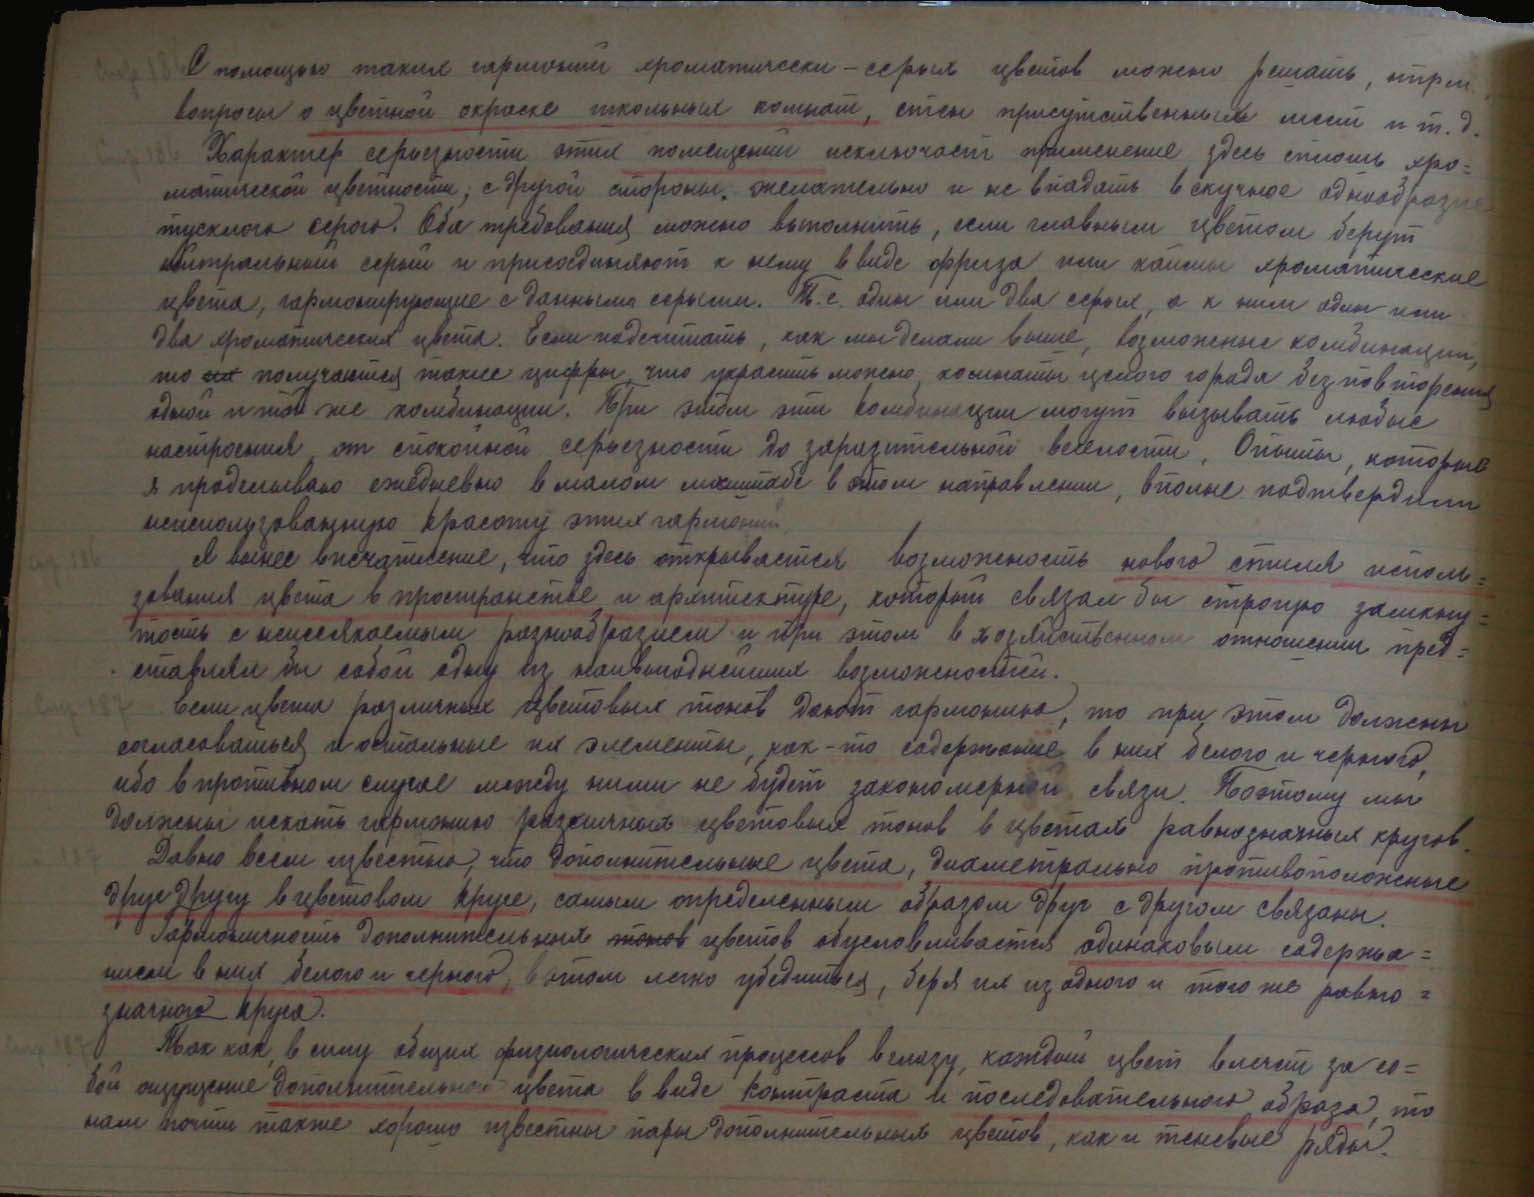 С помощью таких гармоний хроматически – серых цветов можно решать, напр.,
вопросы о цветной окраске школьных комнат, стен присутственных мест и т. д.
Стр 186 Характер серьезности этих помещений исключает применение здесь сплошь хро=
матической цветности; с другой стороны, желательно и не впадать в скучное однообразие
тусклого серого. Оба требования можно выполнить, если главным цветом берут
нейтральный серый и присоединяют к нему в виде фриза или каймы хроматические
цвета, гармонирующие с данными серыми. Т. е. один или два серых, а к ним один или
два хроматических цвета. Если подсчитать, как мы делали выше, возможные комбинации,
то получаются такие цифры, что украсить можно комнаты целого города без повторения
одной и той же комбинации. При этом эти комбинации могут вызывать любые
настроения от спокойной серьезности до заразительной веселости. Опыты, которые
я проделываю ежедневно в малом масштабе в этом направлении, вполне подтвердили
неиспользованную красоту этих гармоний.
186 Я вынес впечатление, что здесь открывается возможность нового стиля исполь=
зования цвета в пространстве и архитектуре, который связал бы строгую замкну=
тость с неиссякаемым разнообразием и при этом в хозяйственном отношении пред=
ставлял бы собой одну из наивыгоднейших возможностей.
Стр 187 Если цвета различных цветовых тонов дают гармонию, то при этом должны
согласоваться и остальные их элементы, как-то содержание в них белого и черного,
ибо в противном случае между ними не будет закономерной связи. Поэтому мы
должны искать гармонию различных цветовых тонов в цветах равнозначных кругов.
187 Давно всем известно, что дополнительные цвета, диаметрально противоположные
друг другу в цветовом круге, самым определенным образом друг с другом связаны.
Гармоничность дополнительных тонов цветов обусловливается одинаковым содержа=
нием в них белого и черного, в этом легко убедиться, беря их из одного и того же равно=
значного круга.
Стр 187 Так как, в силу общих физиологических процессов в глазу, каждый цвет влечет за со=
бой ощущение дополнительного цвета в виде контраста и последовательного образа, то
нам почти также хорошо известны пары дополнительных цветов, как и теневые ряды.